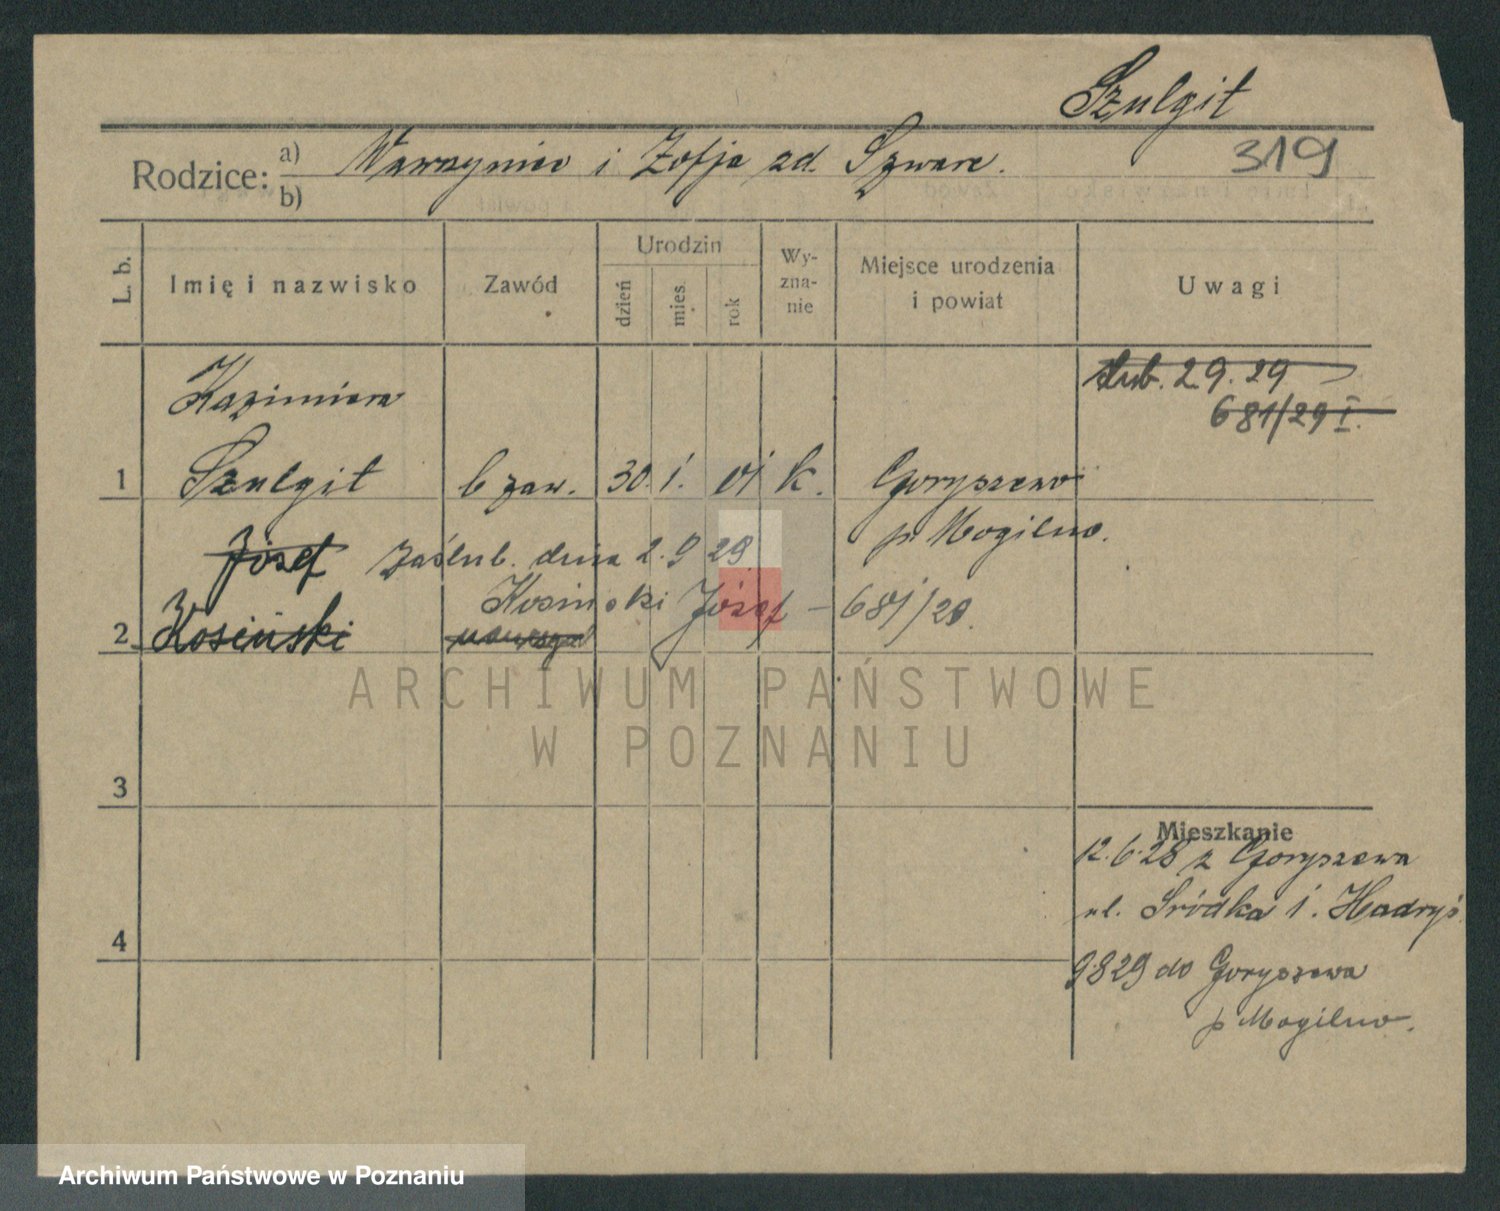 Szulgit
319
Rodzice: a) Wawrzyniec i Zofja zd. Szwarc.
b)
L. b.
Imię i nazwisko
Zawód
Urodzin
dzień
mies.
rok
Wy-
zna-
nie
Miejsce urodzenia
i powiat
Uwagi
Kazimiera
ślub. 2.9.29
681/29 I.
1 Szulgit b zaw. 30. 1. 01 k. Goryszewo
p. Mogilno.
Józef Zaślub. dnia 2. 9 29.
Kosiński Józef – 681/29.
2 Kosiński
ARCHIWUM PAŃSTWOWE
W POZNANIU
3
Mieszkanie
12.6.28 z Goryszewa
ul. Śródka 1.
4
9 8 29 do Goryszewa
p Mogilno.
Archiwum Państwowe w Poznaniu